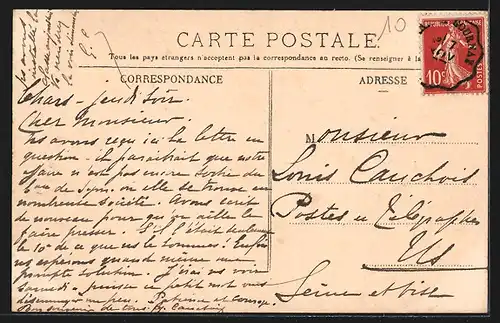 10
CARTE POSTALE
Tous les pays étrangers n'acceptent pas la correspondance au recto. (Se renseigner à la
CORRESPONDANCE
ADRESSE
10c
Chars - jeudi soir
Cher Monsieur
reçu ici la lettre en
question - il paraîtrait que notre
affaire n'est pas encore sortie du
on elle se trouve en
nombreuse société. Avons écrit
de nouveau pour qu'on aille le
faire presser. S'il était seulement
le 10e de ce que ns le sommes! Enfin
ns espérons quand même une
prompte solution. J'irai vs voir
samedi - puisse ce petit mot vous
un peu. Patience et courage
Bon souvenir de tous
Monsieur
Louis Cauchois
Postes et Télégraphes
Us
Seine et Oise